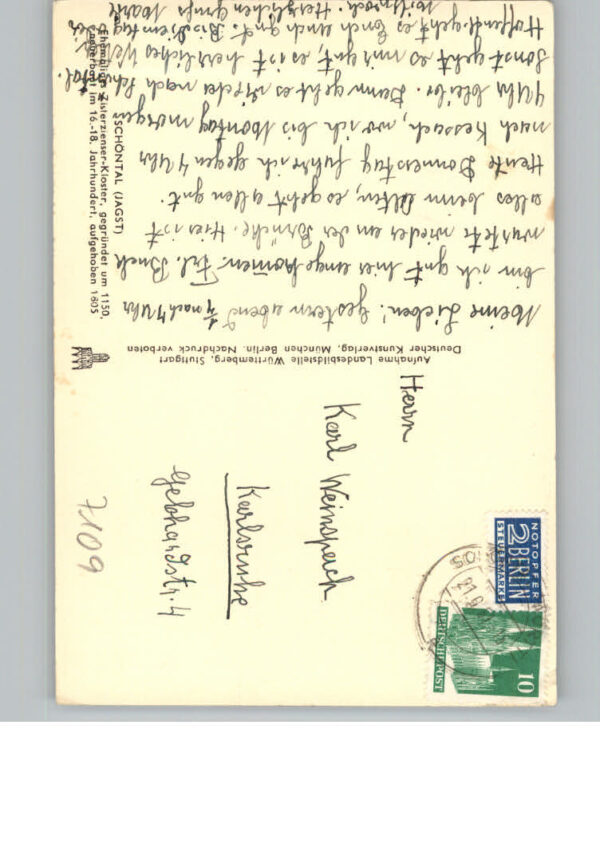 SCHÖNTAL (JAGST)
Ehemaliges Zisterzienser-Kloster, gegründet um 1150,
erbaut im 16.-18. Jahrhundert, aufgehoben 1803
Meine Lieben! Gestern abend ¼ nach 7 Uhr
bin ich gut hier angekommen. Frl. Buck
wartete wieder an der Brücke. Hier ist
alles beim Alten, es geht allen gut.
Heute Donnerstag fahr ich gegen 4 Uhr
nach Kessach, wo ich bis Montag morgen
7 Uhr bleibe. Dann geht es wieder nach Schöntal.
Sonst geht es mir gut, es ist herrliches Wetter.
Hoffentl. geht es Euch auch gut. Bis Dienstag
Mittwoch. Herzlichen Gruß
Aufnahme Landesbildstelle Württemberg, Stuttgart
Deutscher Kunstverlag, München Berlin. Nachdruck verboten
Herrn
Karl Weinspach
Karlsruhe
Gebhardstr. 4
7109
NOTOPFER
2 BERLIN
STEUERMARKE
DEUTSCHE POST
10